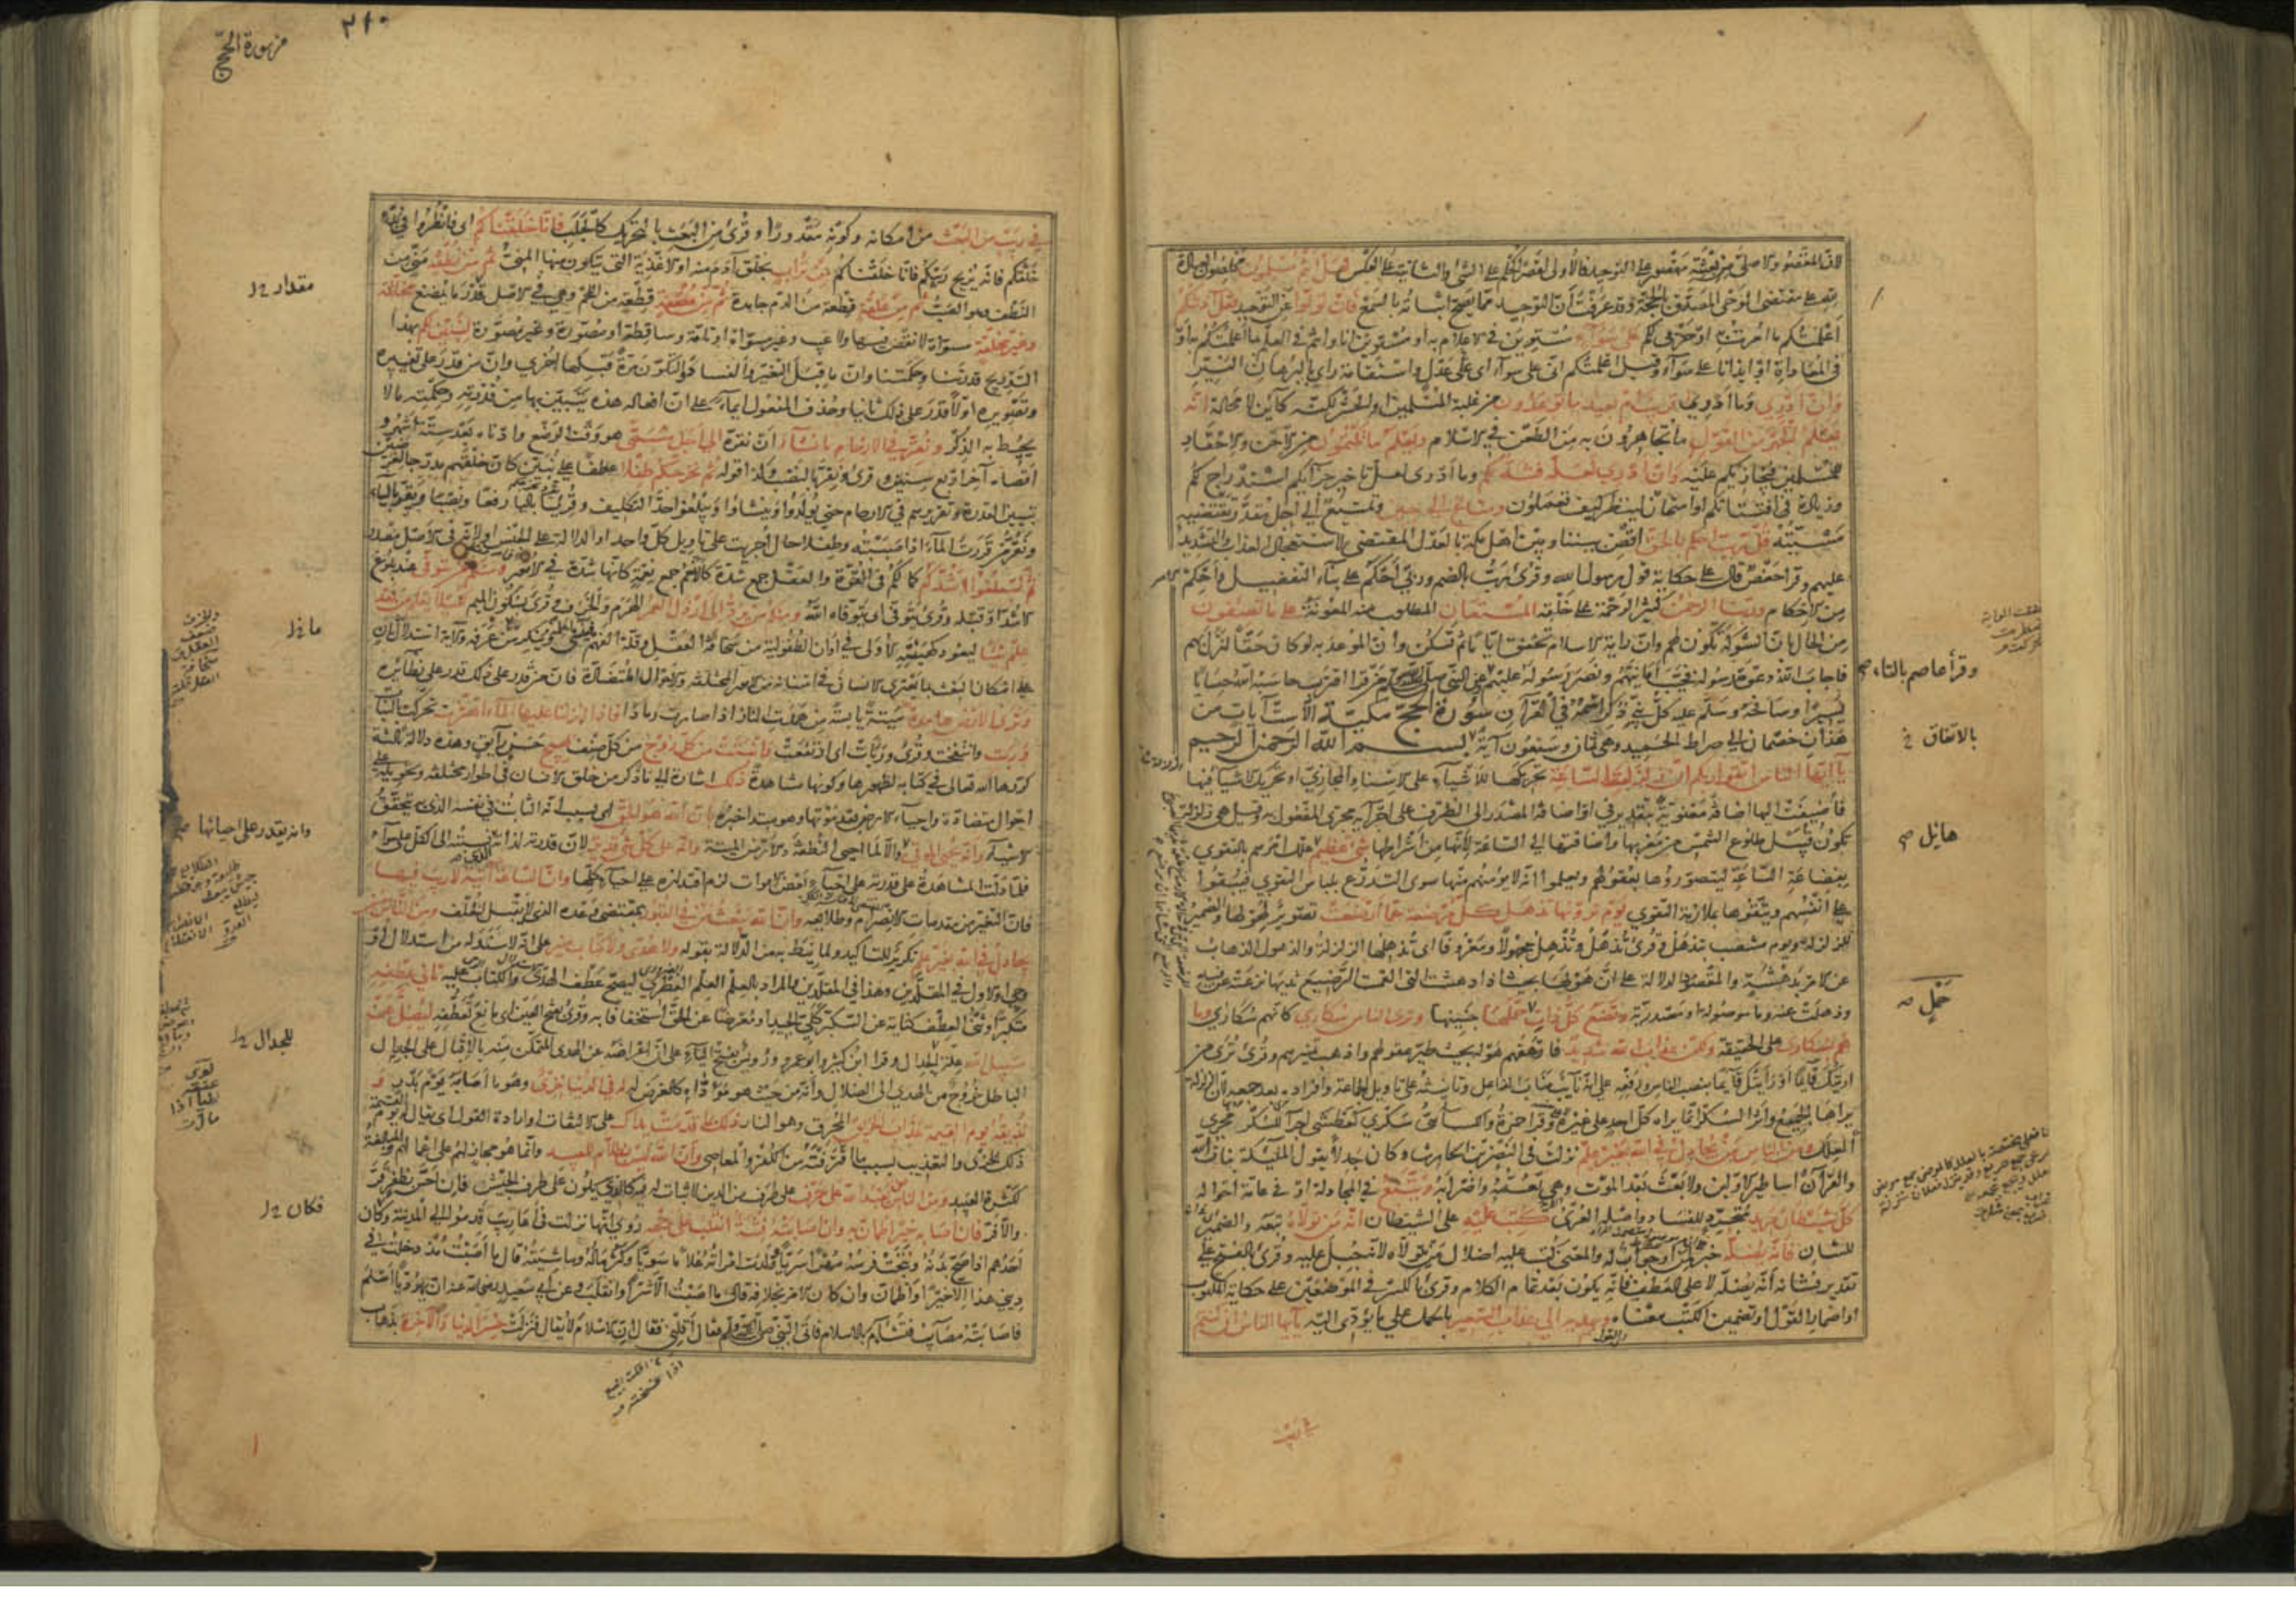 لان المقصود الاصلي من بعثته مقصور على التوحيد فالاولى لقصر الحكم على الشئ والثانية على العكس فهل انتم مسلمون مخلصون العبادة
لله على مقتضى الوحى المصدق بالحجة وقد عرفت ان التوحيد مما يصح اثباته بالسمع فان تولوا عن التوحيد فقل آذنتكم
اعلمتكم ما امرت به او حربى لكم على سوآء مستوين فى الاعلام به او مستوين انا وانتم فى العلم بما اعلمتكم به او
فى المعاداة او ايذانا على سوآء وقيل اعلمتكم انى على سوآء اى على عدل واستقامة راى بالبرهان النير
وان ادرى وما ادرى اقريب ام بعيد ما توعدون من غلبة المسلمين او الحشر لكنه كاين لا محالة انه
يعلم الجهر من القول ما تجاهرون به من الطعن فى الاسلام ويعلم ما تكتمون من الاحن والاحقاد
للمسلمين فيجازيكم عليه وان ادرى لعله فتنة لكم وما ادرى لعل تاخير جزآئكم استدراج لكم
وزيادة فى افتتانكم او امتحان لينظر كيف تعملون ومتاع الى حين وتمتيع الى اجل مقدر تقتضيه
مشيئته قل رب احكم بالحق اقض بيننا وبين اهل مكة بالعدل المقتضى لاستعجال العذاب والتشديد
عليهم وقرا حفص قال على حكاية قول رسول الله وقرئ رب بالضم وربى احكم على بنآء التفضيل واحكم
من الاحكام وربنا الرحمن كثير الرحمة على خلقه المستعان المطلوب منه المعونة على ما تصفون
من الحال بان الشوكة تكون لهم وان راية الاسلام تخفق اياما ثم تسكن وان الموعد به لو كان حقا لنزل بهم
فاجاب الله دعوة رسوله فخيب امانيهم ونصر رسوله عليهم عن النبى صلى الله عليه وسلم من قرا اقترب حاسبه الله حسابا
يسيرا وصافحه وسلم عليه كل نبى ذكر اسمه فى القرآن سورة الحج مكية الا ست آيات من
هذان خصمان الى صراط الحميد وهى ثمان وسبعون آية بسم الله الرحمن الرحيم
يا ايها الناس اتقوا ربكم ان زلزلة الساعة تحريكها للاشيآء على الاسناد المجازى او تحريك الاشيآء فيها
فاضيفت اليها اضافة معنوية بتقدير فى او اضافة المصدر الى الظرف على اجرآئه مجرى المفعول به وقيل هى زلزلة
تكون قبيل طلوع الشمس من مغربها واضافتها الى الساعة لانها من اشراطها شئ عظيم علل امرهم بالتقوى
بفظاعة الساعة ليتصوروها بعقولهم ويعلموا انه لا يؤمنهم منها سوى التدرع بلباس التقوى فيبقوا
على انفسهم ويتقوها بملازمة التقوى يوم ترونها تذهل كل مرضعة عما ارضعت تصوير لهولها والضمير
للزلزلة ويوم منتصب بتذهل وقرئ تذهل وتذهل مجهولا ومعروفا اى تذهلها الزلزلة والذهول الذهاب
عن الامر بدهشة والمقصود الدلالة على ان هولها بحيث اذا دهشت التى القمت الرضيع ثديها نزعته عن فيه
وذهلت عنه وما موصولة او مصدرية وتضع كل ذات حمل حملها جنينها وترى الناس سكارى كانهم سكارى وما
هم بسكارى على الحقيقة ولكن عذاب الله شديد فارهقهم هوله بحيث طير عقولهم واذهب تمييزهم وقرئ ترى من
اريتك قآئما او رايتك قآئما بنصب الناس ورفعه على انه نآئب مناب الفاعل وتانيثه على تاويل الجماعة وافراده بعد جمعه لان الزلزلة
يراها الجميع واثر السكر انما يراه كل احد على غيره وقرا حمزة والكسآئى سكرى كعطشى اجرآء للسكر مجرى
العلل ومن الناس من يجادل فى الله بغير علم نزلت فى النضر بن الحارث وكان جدلا يقول الملآئكة بنات الله
والقرآن اساطير الاولين ولا بعث بعد الموت وهى تعمه واضرابه ويتبع فى المجادلة او فى عامة احواله
كل شيطان مريد متجرد للفساد واصله العرى كتب عليه على الشيطان انه من تولاه تبعه والضمير
للشان فانه يضله خبر لمن او جواب له والمعنى كتب عليه اضلال من يتولاه لانه جبل عليه وقرئ بالفتح على
تقدير فشانه انه يضله لا على العطف فانه يكون بعد تمام الكلام وقرئ بالكسر فى الموضعين على حكاية المكتوب
او اضمار القول او تضمين الكتب معناه ويهديه الى عذاب السعير بالحمل على ما يؤدى اليه يا ايها الناس ان كنتم
وقرأ عاصم بالتاء صح
بالاتفاق
هايل صح
حمل
فى ريب
٣١٠
من سورة الحج
فى ريب من البعث من امكانه وكونه مقدورا وقرئ من البعث بالتحريك كالجلب فانا خلقناكم اى فانظروا فى بدء
خلقكم فانه يزيح ريبكم فانا خلقناكم من تراب بخلق آدم منه او الاغذية التى يتكون منها المنى ثم من نطفة منى من
النطف وهو الصب ثم من علقة قطعة من الدم جامدة ثم من مضغة قطعة من اللحم وهى فى الاصل قدر ما يمضغ مخلقة
وغير مخلقة مسواة لا نقص فيها ولا عيب وغير مسواة او تامة وساقطة او مصورة وغير مصورة لنبين لكم بهذا
التدريج قدرتنا وحكمتنا وان ما قبل التغير والفساد والتكون مرة قبلها اخرى وان من قدر على تغييره
وتصويره اولا قدر على ذلك ثانيا وحذف المفعول ايمآء على ان افعاله هذه يتبين بها من قدرته وحكمته ما لا
يحيط به الذكر ونقر فى الارحام ما نشآء ان نقره الى اجل مسمى هو وقت الوضع وادناه بعد ستة اشهر و
اقصاه آخر اربع سنين وقرئ ونقره بالنصب وكذا قوله ثم نخرجكم طفلا عطفا على نبين كان خلقهم مدرجا لغرضين
تبيين القدرة وتقريرهم فى الارحام حتى يولدوا وينشاوا ويبلغوا حد التكليف وقرئا باليآء رفعا ونصبا ويقر باليآء
ونقر من قررت المآء اذا صببته وطفلا حال اجريت على تاويل كل واحد او الدلالة على الجنس او لانه فى الاصل مصدر
ثم لتبلغوا اشدكم كمالكم فى القوة والعقل جمع شدة كالانعم جمع نعمة كانها شدة فى الامور ومنكم من يتوفى عند بلوغ
الاشد او قبله وقرئ يتوفى اى يتوفاه الله ومنكم من يرد الى ارذل العمر الهرم والخرف وقرئ بسكون الميم لكيلا يعلم من بعد
علم شيئا ليعود كهيئته الاولى فى اوان الطفولية من سخافة العقل وقلة الفهم فينسى ما علمه وينكر من عرفه والآية استدلال ثان
على امكان البعث بما يعترى الانسان فى اسنانه من الامور المختلفة والاحوال المتضادة فان من قدر على ذلك قدر على نظآئره
وترى الارض هامدة ميتة يابسة من همدت النار اذا صارت رمادا فاذا انزلنا عليها المآء اهتزت تحركت بالنبات
وربت وانتفخت وقرئ وربات اى ارتفعت وانبتت من كل زوج من كل صنف بهيج حسن رآئق وهذه دلالة ثالثة
كررها الله تعالى فى كتابه لظهورها وكونها مشاهدة ذلك اشارة الى ما ذكر من خلق الانسان فى اطوار مختلفة وتحويله على
احوال متضادة واحيآء الارض بعد موتها وهو مبتدا خبره بان الله هو الحق اى بسبب انه الثابت فى نفسه الذى به تتحقق
الاشيآء وانه يحيى الموتى والا لما احيى النطفة والارض الميتة وانه على كل شئ قدير لان قدرته لذاته الذى نسبته الى الكل على سوآء
فلما دلت المشاهدة على قدرته على احيآء بعض الاموات لزم اقتداره على احيآء كلها وان الساعة آتية لا ريب فيها
فان التغير من مقدمات الانصرام وطلآئعه وان الله يبعث من فى القبور بمقتضى وعده الذى لا يقبل الخلف ومن الناس من
يجادل فى الله بغير علم تكرير للتاكيد ولما نيط به من الدلالة بقوله ولا هدى ولا كتاب منير على انه لا سند له من استدلال او
وحى او الاول فى المقلدين وهذا فى المقلدين والمراد بالعلم العلم الفطرى ليصح عطف الهدى والكتاب عليه ثانى عطفه
متكبرا وثنى العطف كناية عن التكبر كلى الجيد او معرضا عن الحق استخفافا به وقرئ بفتح العين اى مانع تعطفه ليضل عن
سبيل الله علة للجدال وقرا ابن كثير وابو عمرو ورويس بفتح اليآء على ان اعراضه عن الهدى المتمكن منه بالاقبال على الجدال
الباطل خروج من الهدى الى الضلال وانه من حيث هو مؤداه كالغرض له له فى الدنيا خزى وهو ما اصابه يوم بدر و
نذيقه يوم القيمة عذاب الحريق المحرق وهو النار ذلك بما قدمت يداك على الالتفات او ارادة القول اى يقال له يوم القيمة
ذلك الخزى والتعذيب بسبب ما اقترفته من الكفر والمعاصى وان الله ليس بظلام للعبيد وانما هو مجاز لهم على اعمالهم والمبالغة
لكثرة العبيد ومن الناس من يعبد الله على حرف على طرف من الدين لا ثبات له فيه كالذى يكون على طرف الجيش فان احس بظفر قر
والا فر فان اصابه خير اطمان به وان اصابته فتنة انقلب على وجهه روى انها نزلت فى اعاريب قدموا الى المدينة وكان
احدهم اذا صح بدنه ونتجت فرسه مهرا سريا وولدت امراته غلاما سويا وكثر ماله وماشيته قال ما اصبت منذ دخلت فى
دينى هذا الا خيرا واطمان وان كان الامر بخلافه قال ما اصبت الا شرا وانقلب وعن ابى سعيد رضى الله عنه ان يهوديا اسلم
فاصابته مصآئب فتشآءم بالاسلام فاتى النبى صلى الله عليه وسلم فقال اقلنى فقال ان الاسلام لا يقال فنزلت خسر الدنيا والآخرة بذهاب
مقدار
ما
وانه يقدر على احيائها صح
للجدال
فكان